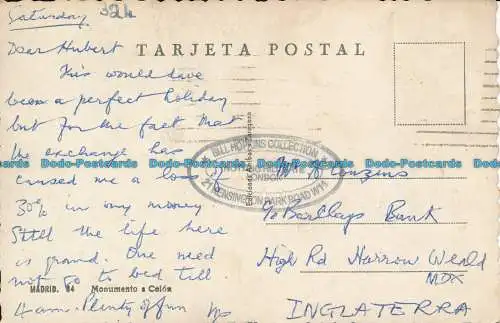 Saturday
324
Dear Hubert
TARJETA POSTAL
This would have
been a perfect holiday
but for the fact that
the exchange has
caused me a loss of
30% in my money
Still the life here
is grand. One need
not go to bed till
4 am. Plenty of fun
MADRID. 84 Monumento a Colón
BILL HOPKINS COLLECTION
NOTTING HILL GATE
LONDON
KENSINGTON PARK ROAD W11
c/o Barclays Bank
High Rd Harrow Weald
MDX
INGLATERRA
Dodo-Postcards Dodo-Postcards Dodo-Postcards Dodo-Postcards Dodo-Postcards